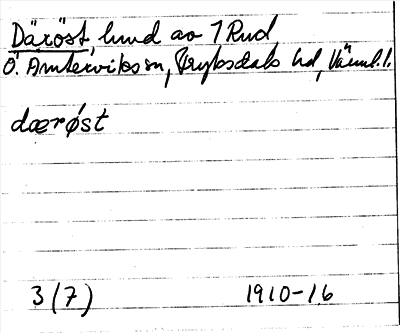 Däröst, hmd av 1 Rud
Ö. Ämtervik sn, Fryksdals hd, Värml. l.
dærøst
3 (7) 1910-16